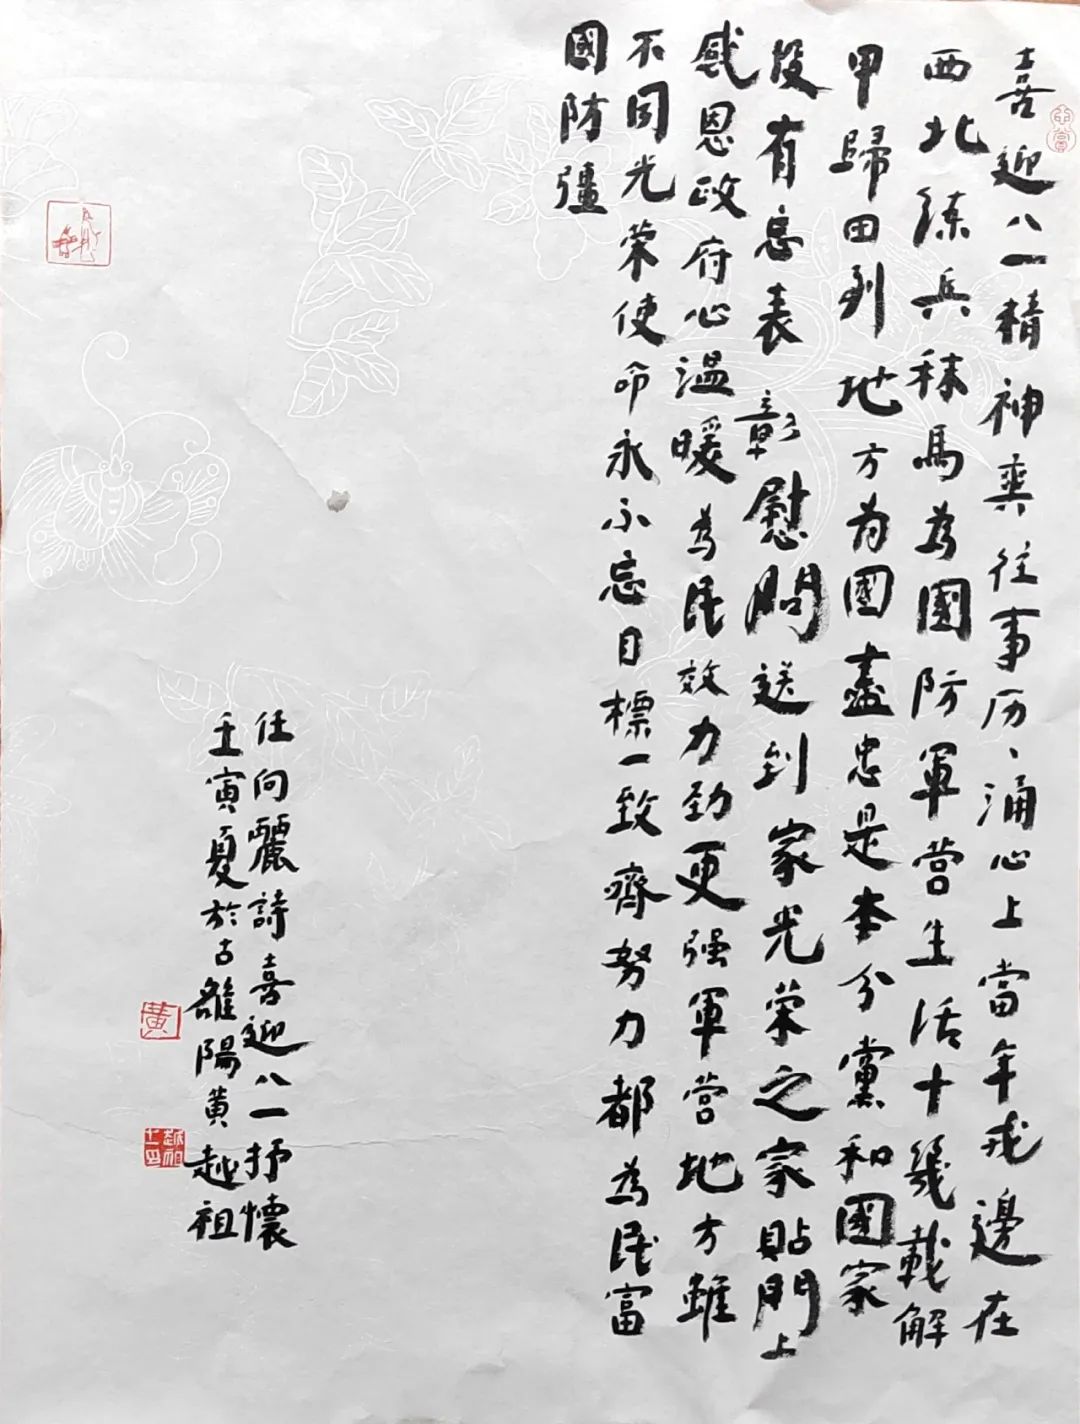 喜迎八一精神爽往事历、涌心上當年戎邊在
西北練兵秣馬為國防軍营生活十幾載解
甲歸田到地方为國盡忠是本分黨和國家
没有忘表彰慰問送到家光荣之家貼門上
感恩政府心溫暖為民效力劲更强軍营地方雖
不同光荣使命永不忘目標一致齊努力都為民富
國防彊
任向麗詩喜迎八一抒懷
壬寅夏於古雒陽黄越祖
黄